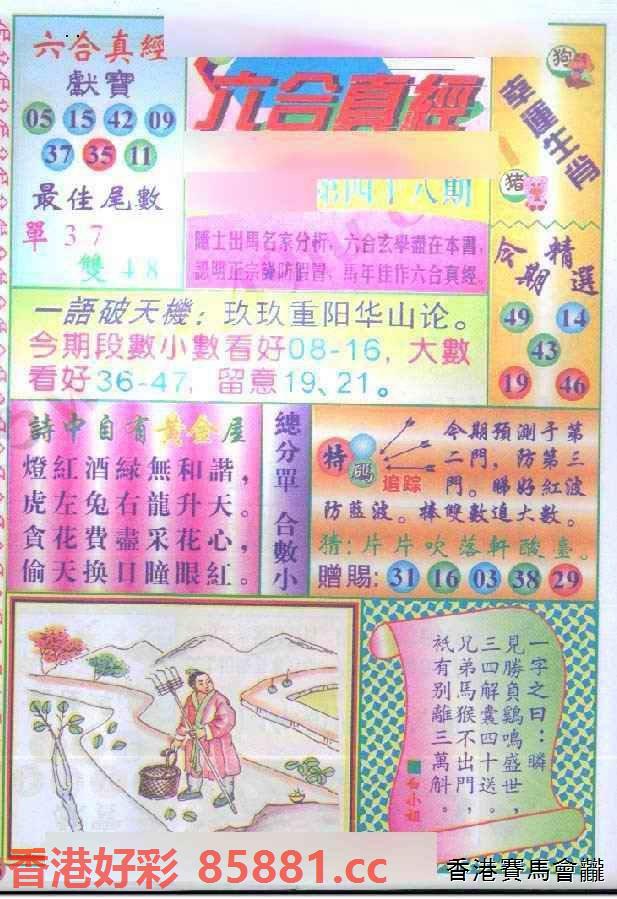 六合真經
獻寶
05 15 42 09
37 35 11
最佳尾數
單 3 7
雙 4 8
六合真經
第四十八期
隱士出馬名家分析，六合玄學盡在本書，
認明正宗謹防假冒，馬年佳作六合真經。
狗
幸運生肖
猪
今期精選
49 14
43
19 46
一語破天機：玖玖重阳华山论。
今期段數小數看好08-16，大數
看好36-47，留意19、21。
詩中自有黃金屋
燈紅酒綠無和諧，
虎左兔右龍升天。
貪花費盡采花心，
偷天换日瞳眼紅。
總分單 合數小
特碼
追踪
今期預測于第
二門，防第三
門。睇好紅波
防藍波。棒雙數追大數。
猜：片片吹落軒酸臺。
贈賜：31 16 03 38 29
一字之曰：瞬
見勝負鷄鳴盛世，
三四解囊四十送。
兄弟馬猴不出門，
祇有別離三萬斛。
白小姐
香港好彩 85881.cc
香港賽馬會